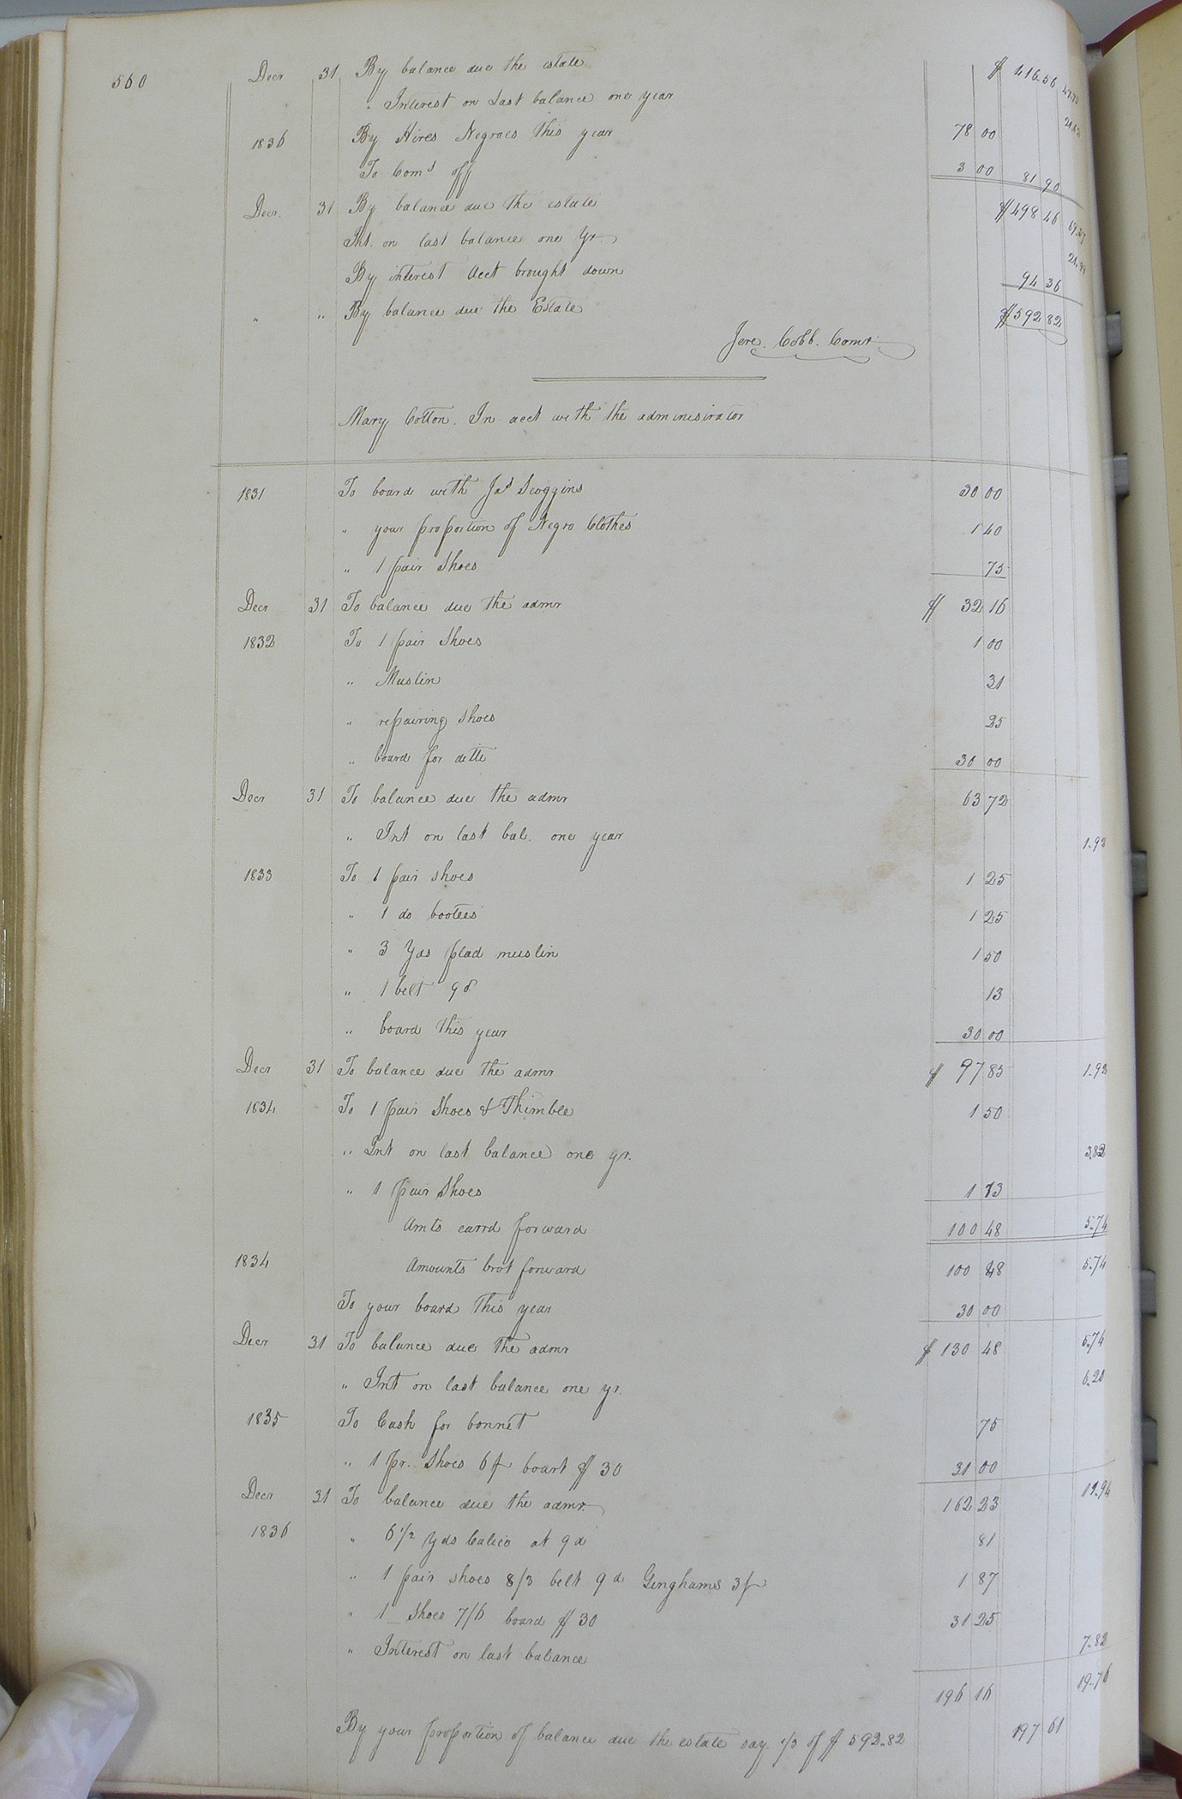 560
Decr 31 By balance due the estate $ 416.56
" Interest on Last balance one year
1836 By Hires Negroes this year 78 00
To Coms off 3 00 81 90
Decr. 31 By balance due the estate $498 46
Int. on last balance one Yr.
By interest acct brought down 94 36
" " By balance due the Estate $592 82
Jere. Cobb. Comr
Mary Cotton. In acct with the administrator
1831 To board with Jas Scoggins 30 00
" your proportion of Negro Clothes 1 40
" 1 pair Shoes 75
Decr 31 To balance due the admr $ 32 16
1832 To 1 pair Shoes 1 00
" Muslin 31
" repairing Shoes 25
" board for ditto 30 00
Decr 31 To balance due the admr 63 72
" Int on last bal. one year 1.92
1833 To 1 pair shoes 1 25
" 1 do bootees 1 25
" 3 Yds plad muslin 1 50
" 1 belt 9d 13
" board this year 30 00
Decr 31 To balance due the admr $ 97 85 1.92
1834 To 1 pair Shoes & Thimble 1 50
" Int on last balance one yr. 3.82
" 1 pair Shoes 1 13
Amts carrd forward 100 48 5.74
1834 Amounts brot forward 100 48 5.74
To your board this year 30 00
Decr 31 To balance due the admr $ 130 48 5.74
" Int on last balance one yr. 6.20
1835 To Cash for bonnet 75
" 1 pr. Shoes 6/ board $ 30 31 00
Decr 31 To balance due the admr. 162 23 11.94
1836 " 6 1/2 Yds Calico at 9d 81
" 1 pair shoes 8/3 belt 9d Ginghams 3/ 1 87
" 1 Shoes 7/6 board $ 30 31 25
" Interest on last balance 7.82
196 16 19.76
By your proportion of balance due the estate say 1/3 of $ 592.82 197 61